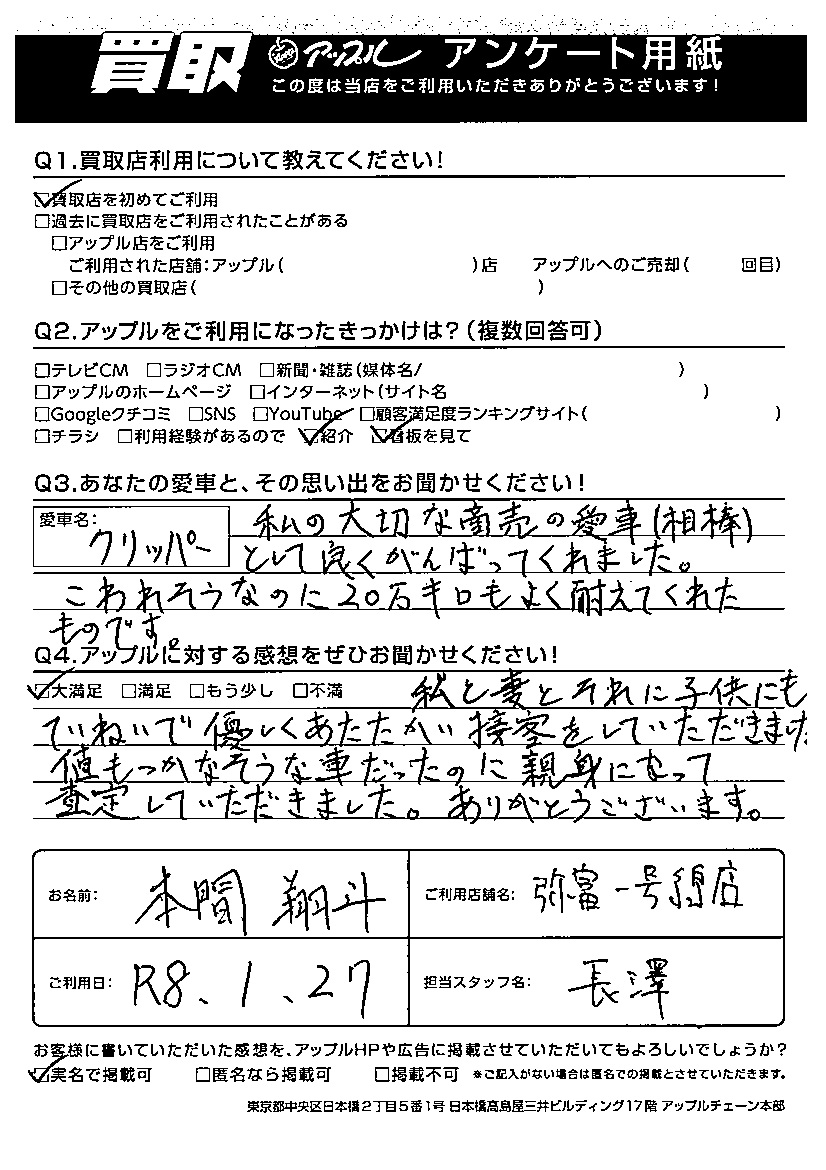 買取 アップル アンケート用紙
この度は当店をご利用いただきありがとうございます!
Q1.買取店利用について教えてください!
☑買取店を初めてご利用
□過去に買取店をご利用されたことがある
□アップル店をご利用
ご利用された店舗:アップル( )店 アップルへのご売却( 回目)
□その他の買取店( )
Q2.アップルをご利用になったきっかけは?(複数回答可)
□テレビCM □ラジオCM □新聞・雑誌(媒体名/ )
□アップルのホームページ □インターネット(サイト名 )
□Googleクチコミ □SNS □YouTube □顧客満足度ランキングサイト( )
□チラシ □利用経験があるので ☑紹介 ☑看板を見て
Q3.あなたの愛車と、その思い出をお聞かせください!
愛車名: クリッパー
私の大切な商売の愛車(相棒)
として良くがんばってくれました。
こわれそうなのに20万キロもよく耐えてくれた
ものです。
Q4.アップルに対する感想をぜひお聞かせください!
☑大満足 □満足 □もう少し □不満 私と妻とそれに子供にも
ていねいで優しくあたたかい接客をしていただきました
値もつかなそうな車だったのに親身になって
査定していただきました。ありがとうございます。
お名前: 本間 翔斗 ご利用店舗名: 弥富一号線店
ご利用日: R8、1、27 担当スタッフ名: 長澤
お客様に書いていただいた感想を、アップルHPや広告に掲載させていただいてもよろしいでしょうか?
☑実名で掲載可 □匿名なら掲載可 □掲載不可 ※ご記入がない場合は匿名での掲載とさせていただきます。
東京都中央区日本橋2丁目5番1号 日本橋髙島屋三井ビルディング17階 アップルチェーン本部